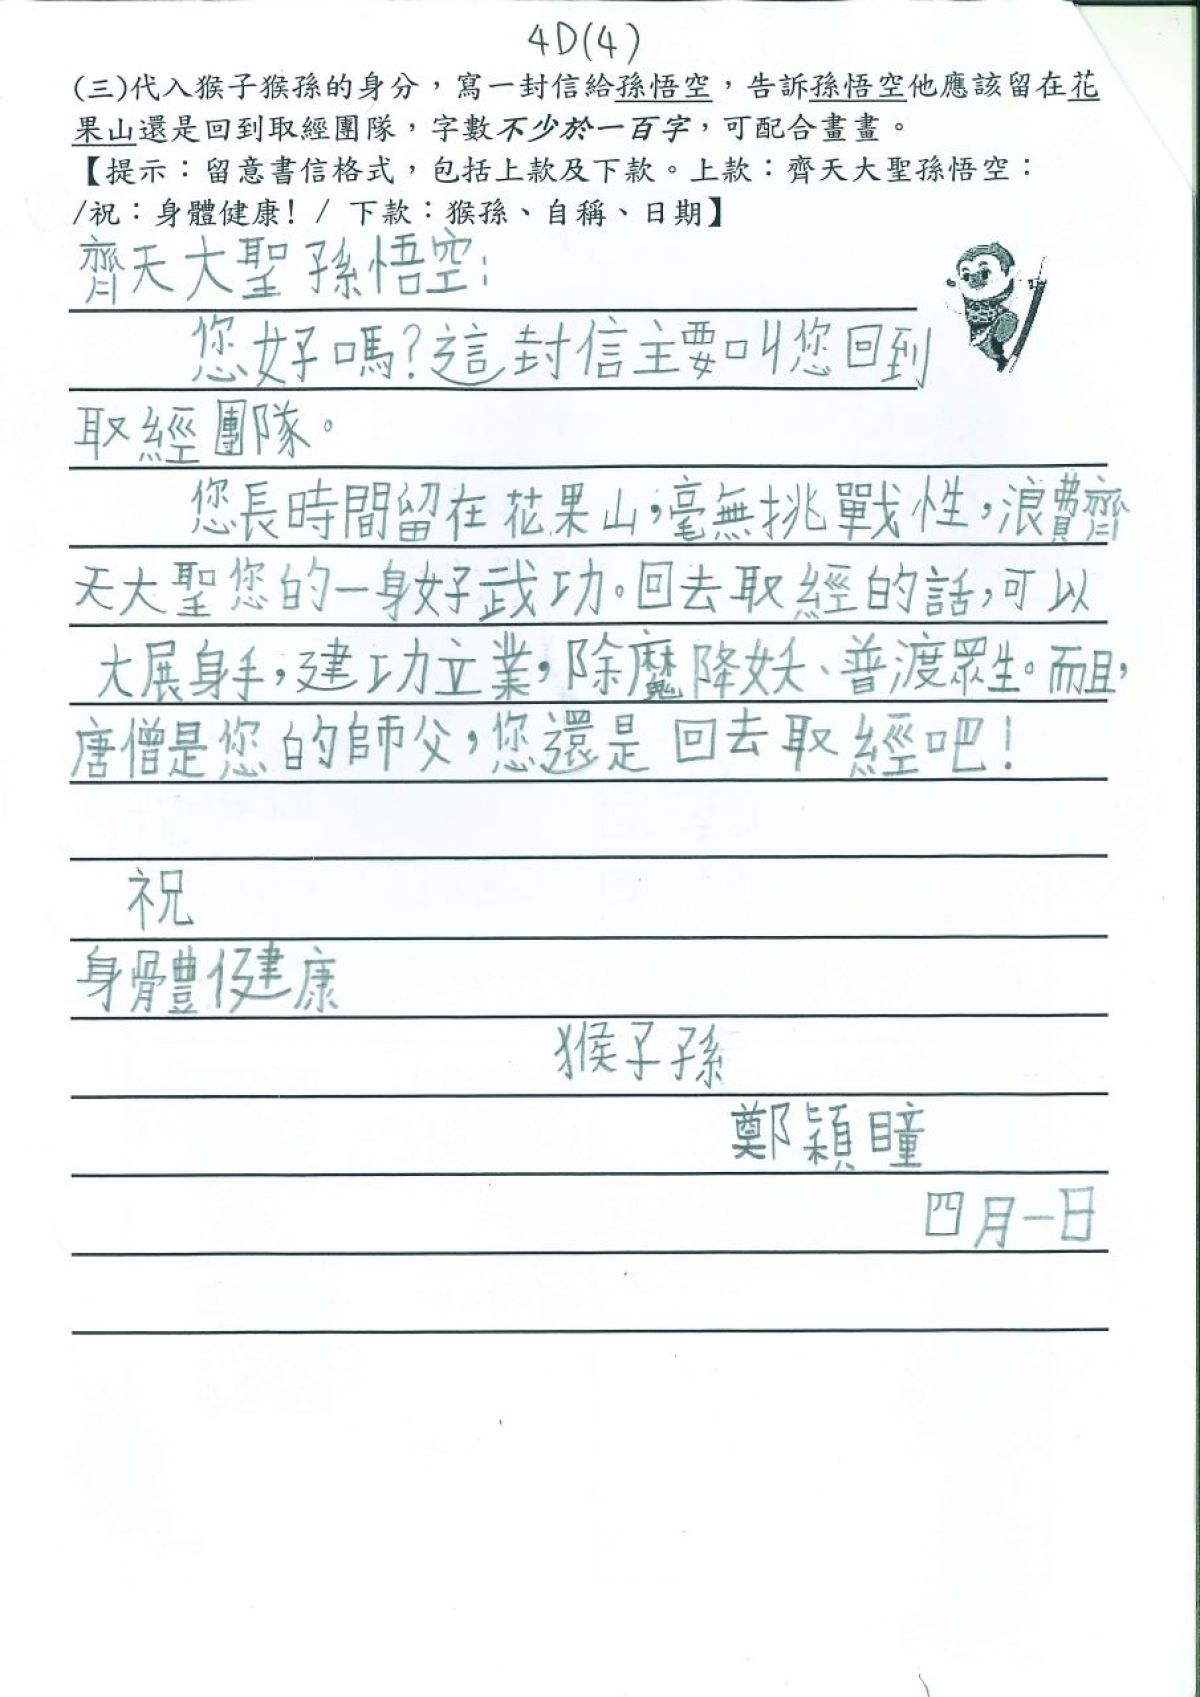 4D(4)
(三)代入猴子猴孫的身分，寫一封信給孫悟空，告訴孫悟空他應該留在花
果山還是回到取經團隊，字數不少於一百字，可配合畫畫。
【提示：留意書信格式，包括上款及下款。上款：齊天大聖孫悟空：
/祝：身體健康! / 下款：猴孫、自稱、日期】
齊天大聖孫悟空：
您好嗎?這封信主要叫您回到
取經團隊。
您長時間留在花果山，毫無挑戰性，浪費齊
天大聖您的一身好武功。回去取經的話，可以
大展身手，建功立業，除魔降妖、普渡眾生。而且，
唐僧是您的師父，您還是回去取經吧！
祝
身體健康
猴子孫
鄭穎瞳
四月一日